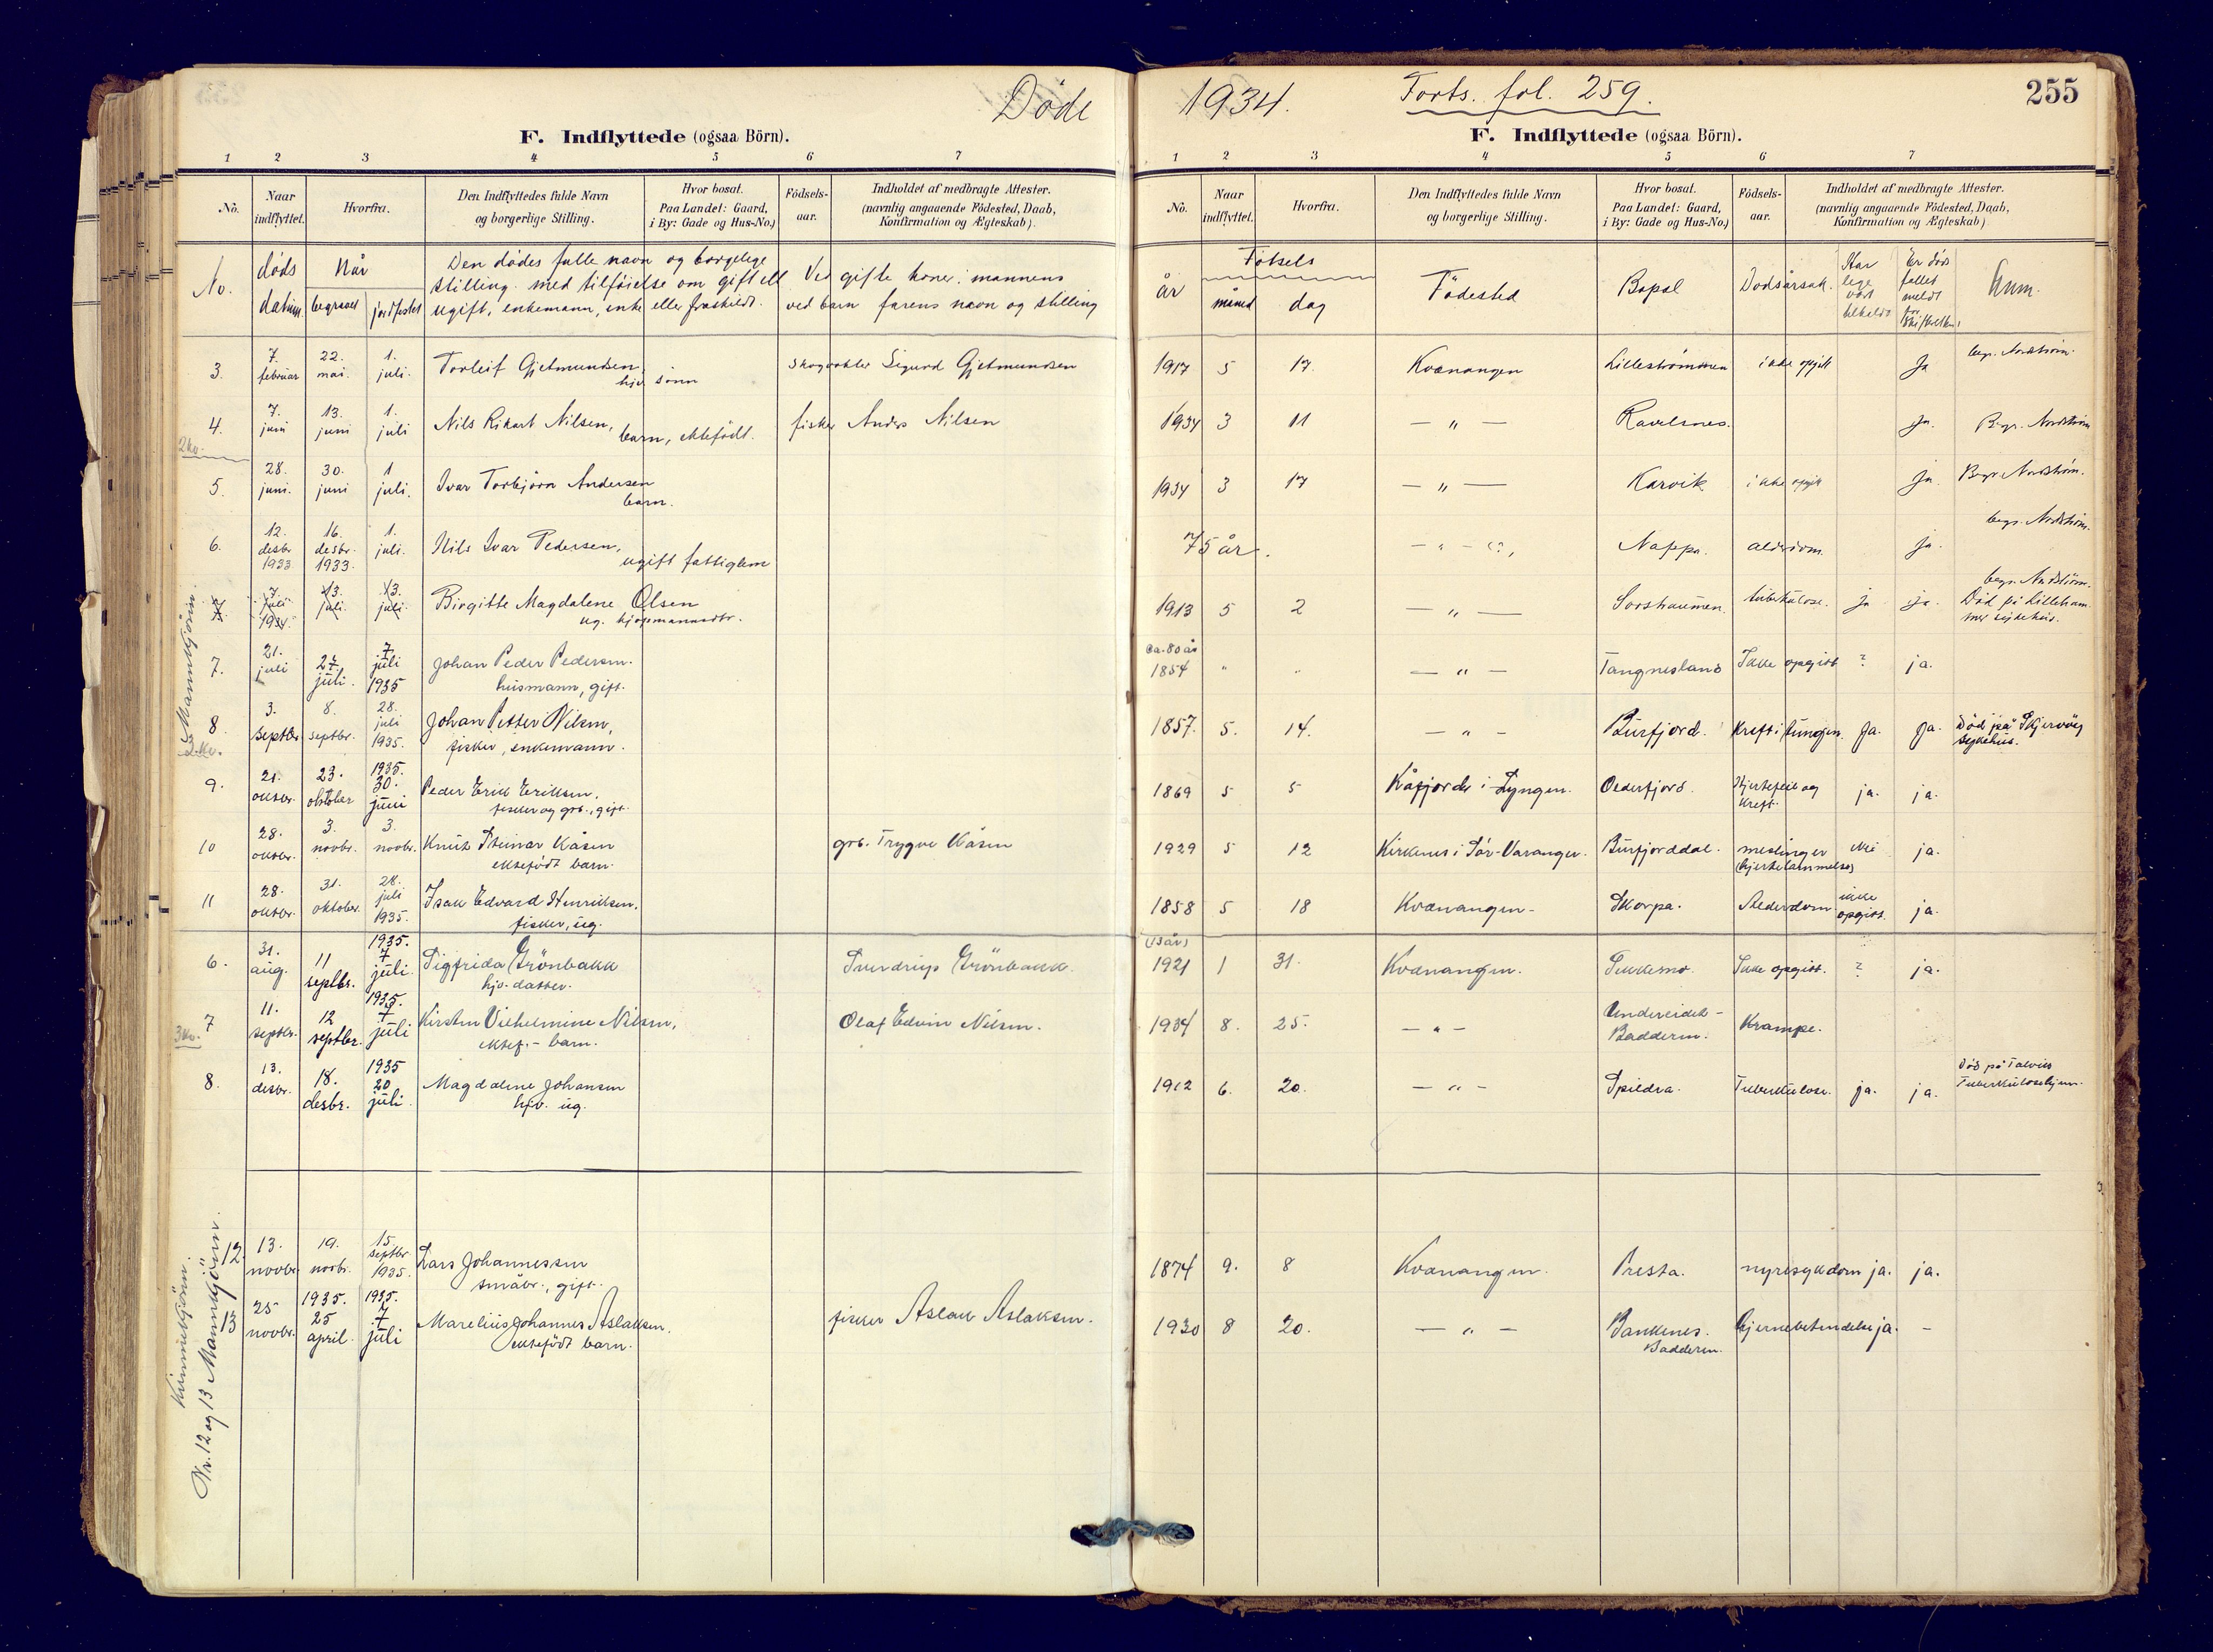 Döde
1934.
Forts. fol. 259.
255
F. Indflyttede (ogsaa Börn).
1 2 3 4 5 6 7
No. Naar indflyttet. Hvorfra. Den Indflyttedes fulde Navn og borgerlige Stilling. Hvor bosat. Paa Landet: Gaard, i By: Gade og Hus-No.) Födsels-aar. Indholdet af medbragte Attester. (navnlig angaaende Födested, Daab, Konfirmation og Ægteskab).
No. döds datum. Når begravet jordfestet
Den dödes fulle navn og borgelige
stilling med tilföielse om gift ell
ugift, enkemann, enke eller fraskildt.
Ved gifte koner: mannens
ved barn farens navn og stilling
3. 7. februar 22. mai. 1. juli. Torleif Gjetmundsen, hjv. sönn Sigurd Gjetmundsen
4. 7. juni 13. juni 1. juli Nils Rikart Nilsen, barn, ektefödt. fisker Anders Nilsen
2 kv.
5. 28. juni. 30. juni 1 juli. Ivar Torbjörn Andersen barn.
6. 12. desbr 1933 16. desbr. 1933. 1. juli. Nils Ivar Pedersen, ugift fattiglem
7. 7. juli 1934. 13. juli. 13. juli. Birgitte Magdalene Olsen ug.
7. 21. juli 27. juli. 7. juli 1935 Johan Peder Pedersen. husmann, gift.
Mannkjönn.
8 3. septbr. 8. septbr. 28. juli 1935. Johan Petter Nilsen, fisker, enkemann.
3. kv.
9. 21. oktbr. 23. oktober 1935. 30. juni Peder Erik Eriksen. fisker og grb., gift.
10 28. oktbr. 3. novbr. 3. novbr. Knut Steinar Kåsen ektefödt barn. grb. Trygve Kåsen
11 28. oktbr. 31. oktober. 28. juli 1935. Isak Edvard Henriksen. fisker, ug.
6. 31. aug. 11 septbr. 1935. 7 juli. Sigfrida Grönbakk hjv. datter. Sverdrup Grönbakk.
7 11. septbr. 12 septbr. 1935. 7 juli Kirsten Vilhelmine Nilsen, ektef. - barn. Olaf Edvin Nilsen.
3 kv.
8. 13. desbr. 18. desbr. 1935 20 juli. Magdalene Johansen hjv. ug.
Kvinnekjönn.
12. 13. novbr. 19. novbr. 15. septbr 1935. Lars Johannessen småbr., gift.
13 25 novbr. 1935. 25 april. 1935. 7 juli Marelius Johannes Aslaksen. ektefödt barn. fisker Aslak Aslaksen.
Nr. 12 og 13 Mannkjönn.
F. Indflyttede (ogsaa Börn).
1 2 3 4 5 6 7
No. Naar indflyttet. Hvorfra. Den Indflyttedes fulde Navn og borgerlige Stilling. Hvor bosat. Paa Landet: Gaard, i By: Gade og Hus-No.) Födsels-aar. Indholdet af medbragte Attester. (navnlig angaaende Födested, Daab, Konfirmation og Ægteskab)
Fötsels
år måned dag Födested Bopel Dödsårsak. Har lege vært tilkaldt Er döds fallet meldt for skifteretten Anm.
1917 5 17. Kvænangen Lilleströmmen ikke opgitt Ja begr. Nordström.
1934 3 11 — " — Ja. Begr. Nordström
1934 3 17 — " — Karvik ikke opgitt Ja. Begr. Nordström.
75 år. — " — (?) Nappa. alderdom. Ja. begr. Nordström.
1913 5 2 — " — tuberkulose. Ja Ja. begr. Nordström. Död på Lilleham mer sykehus.
ca. 80 år 1854 " " — " — Tangnesland Ikke opgitt ? ja.
1857. 5. 14. — " — Burfjord. Kreft i tungen. Ja. Ja. Död på Skjervöy sykehus.
1869 5 5 Kåfjord i Lyngen. Olderfjord. Hjertefeil og kreft. ja. ja.
1929 5 12 Kirkenes i Sör-Varanger. Burfjorddal. meslinger (hjertelammelse) Nei ja.
1858 5 18 Kvænangen. Skorpa. Alderdom ikke opgitt ja.
(13 år) 1921 1 31. Kvænangen. Ikke opgitt. ? ja.
1934 8. 25. — " — Undereidet - Badderen. Krampe.
1912 6. 20. — " — Spildra. Tuberkulose. ja. ja. Död på Talvik Tuberkulosehjem.
1874 9. 8 Kvænangen. Presta. nyresykdom ja. ja.
1930 8 20. — " — Bankenes. Badderen. hjernebetendelse ja. -